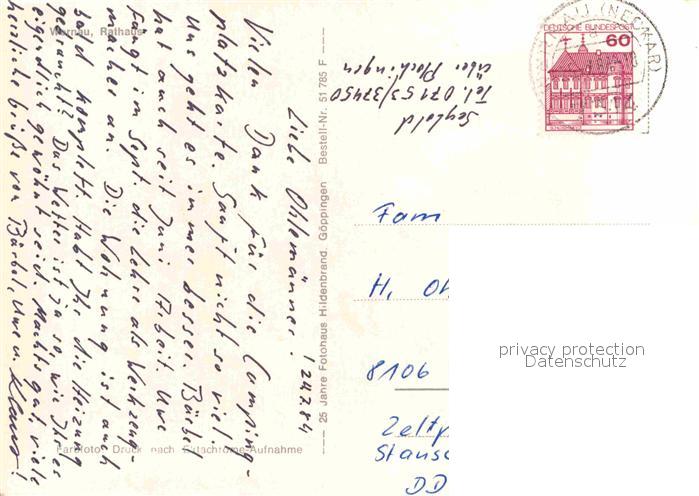 Wernau, Rathaus
Liebe Ohlemänner! 24784
Vielen Dank für die Camping-
platzkarte. Sauft nicht so viel!
Uns geht es immer besser. Bärbel
hat auch seit Juni Arbeit. Uwe
fängt im Sept. die Lehre als Werkzeug-
macher an. Die Wohnung ist auch
bald komplett. Habt Ihr die Heizung
gebraucht? Das Wetter ist ja so, wie Ihr es
eigendlich gewöhnt seid. Machts gut, viele
herzliche Grüße von Bärbel, Uwe u. Klaus!
Farbfoto - Druck nach Ektachrome-Aufnahme
25 Jahre Fotohaus Hildenbrand, Göppingen Bestell-Nr. 51 785 F
Seybold
Tel. 07153/37450
über Plochingen
DEUTSCHE BUNDESPOST
60
(NECKAR)
Fam
H. Oh
8106
Zeltp
Stausee
DD
privacy protection
Datenschutz